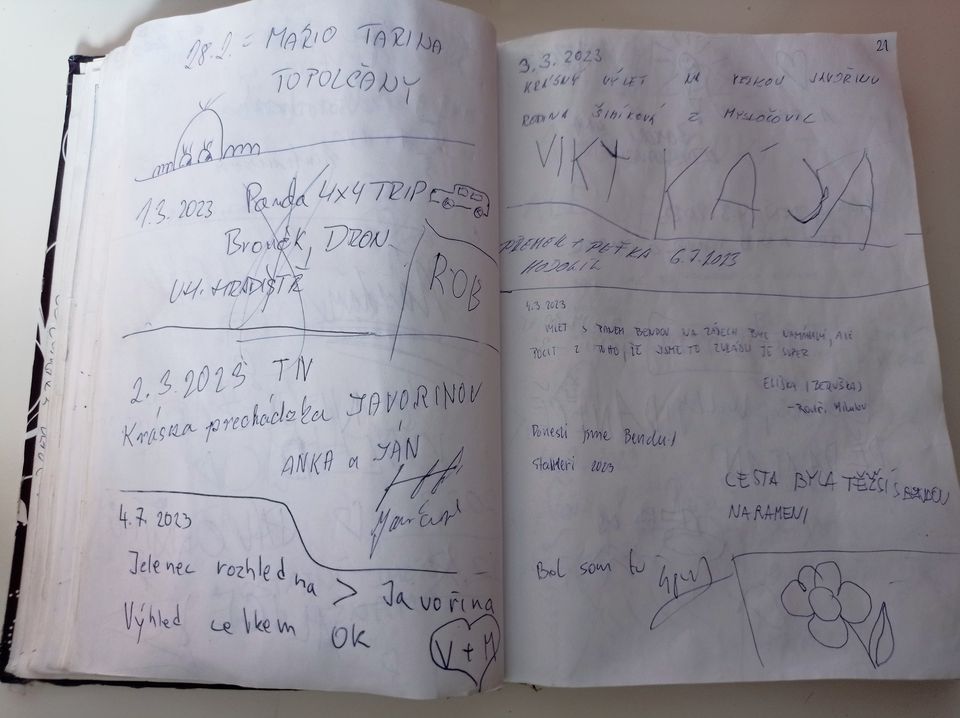 28.2. = MARIO TARINA
TOPOLČANY
1.3. 2023 Panda 4x4 TRIP
Bronek, DRON
UH. HRADIŠTĚ
ROB
2.3.2023 TN
Krásna prechádzka JAVORINOU
ANKA a JÁN
4.7. 2023
Jelenec rozhledna > Javořina
Výhled celkem OK
V + M
21
3.3. 2023
KRÁSNÝ VÝLET NA VELKOU JAVOŘINU
RODINA Z MYSLOČOVIC
VIKY KÁJA
PŘEMEK + PEŤKA 6.7.2023
4.3 2023
VÝLET S PANEM BENDOU NA ZÁDECH BYL NAMÁHAVÝ, ALE
POCIT Z TOHO, ŽE JSME TO ZVLÁDLI JE SUPER
ELIŠKA
Donesli jsme Bendu!
2023
CESTA BYLA TĚŽŠÍ S BENDOU
NA RAMENI
Bol som tu